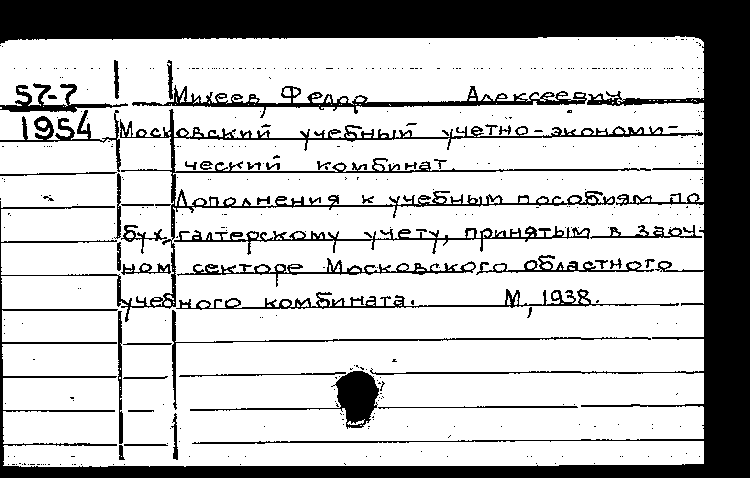 57-7 Михеев, Федор Алексеевич
1954 Московский учебный учетно-экономи-
ческий комбинат.
Дополнения к учебным пособиям по
бух. галтерскому учету, принятым в заоч-
ном секторе Московского областного
учебного комбината. М, 1938.